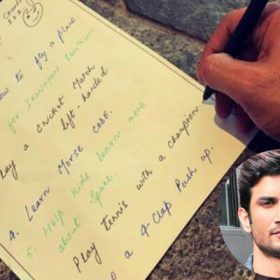 how to fly a plane
for Ironman triathlon
Play a cricket match
left-handed
4. Learn Morse Code.
5. Help kids learn
about Space.
Play tennis with a champion
a 4-Clap Push up.